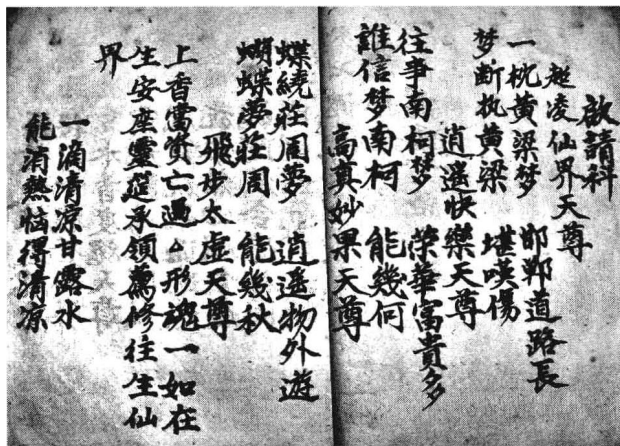 啟請科
超凌仙界天尊
一枕黃梁梦 邯郸道路長
梦断执黄梁 堪嘆傷
逍遥快樂天尊
往事南柯梦 榮華富貴多
誰信梦南柯 能幾何
高真妙果天尊
蝶繞莊周夢 逍遥物外遊
蝴蝶夢莊周 能幾秋
飛步太虚天尊
上香亡過厶形魂一如在
生安座靈筵承領薦修往生仙
界
一滴清凉甘露水
能消熱恼得清凉